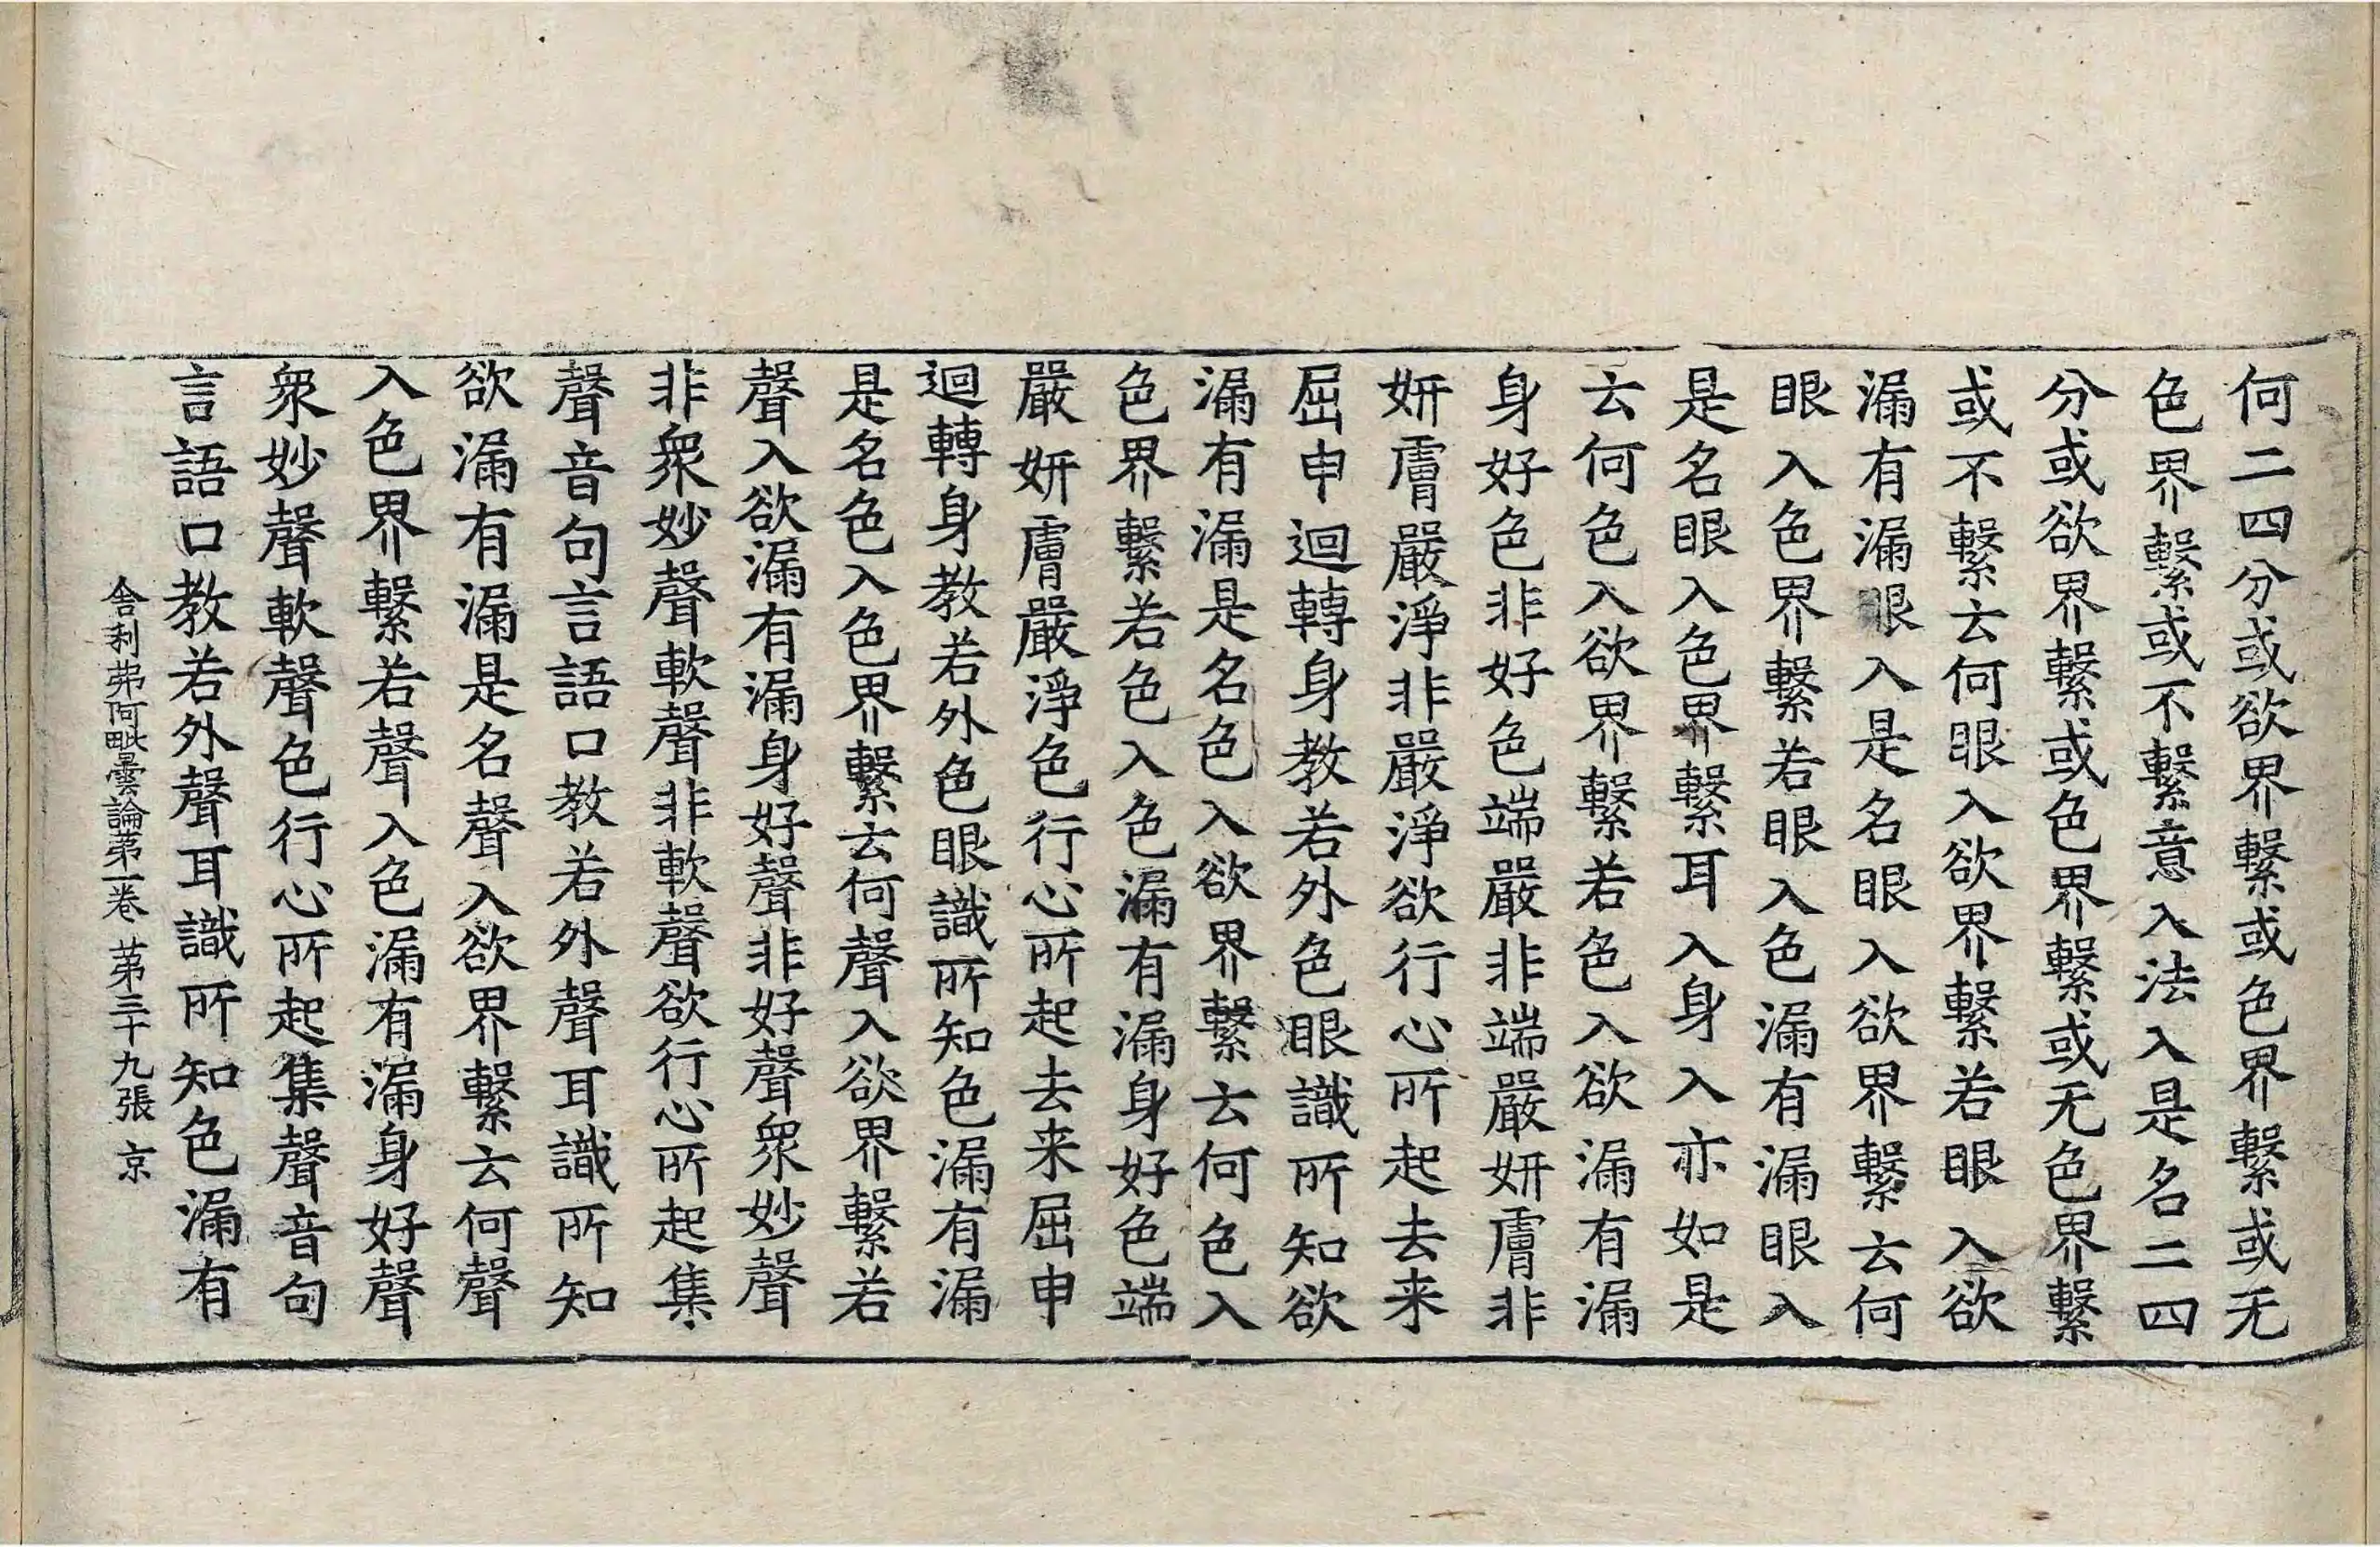 何二四分或欲界繫或色界繫或无
色界繫或不繫意入法入是名二四
分或欲界繫或色界繫或无色界繫
或不繫云何眼入欲界繫若眼入欲
漏有漏眼入是名眼入欲界繫云何
眼入色界繫若眼入色漏有漏眼入
是名眼入色界繫耳入身入亦如是
云何色入欲界繫若色入欲漏有漏
身好色非好色端嚴非端嚴妍膚非
妍膚嚴淨非嚴淨欲行心所起去来
屈申迴轉身教若外色眼識所知欲
漏有漏是名色入欲界繫云何色入
色界繫若色入色漏有漏身好色端
嚴妍膚嚴淨色行心所起去来屈申
迴轉身教若外色眼識所知色漏有漏
是名色入色界繫云何聲入欲界繫若
聲入欲漏有漏身好聲非好聲衆妙聲
非衆妙聲軟聲非軟聲欲行心所起集
聲音句言語口教若外聲耳識所知
欲漏有漏是名聲入欲界繫云何聲
入色界繫若聲入色漏有漏身好聲
衆妙聲軟聲色行心所起集聲音句
言語口教若外聲耳識所知色漏有
舍利弗阿毗曇論第一卷 第三十九張 京